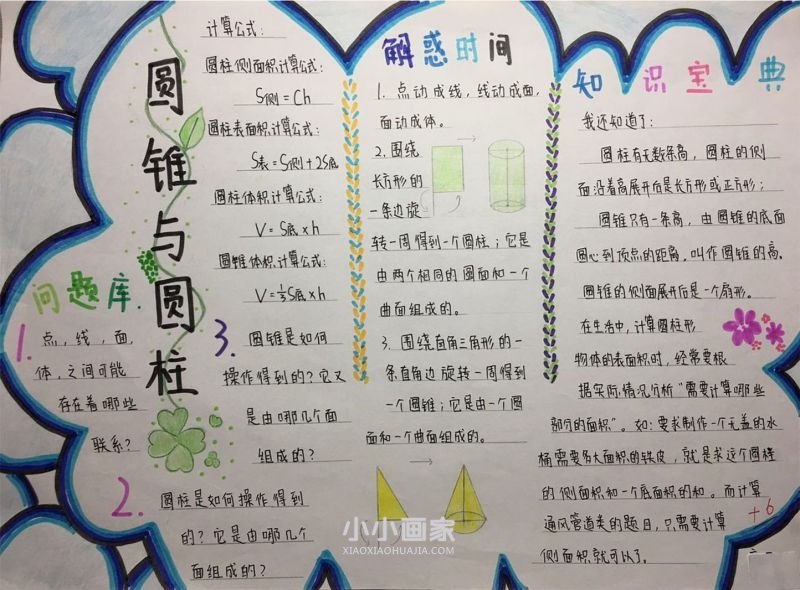 圆锥与圆柱
计算公式:
圆柱侧面积计算公式:
S侧=Ch
圆柱表面积计算公式:
S表=S侧+2S底
圆柱体积计算公式:
V=S底×h
圆锥体积计算公式:
V=⅓S底×h
问题库
1. 点,线,面,
体,之间可能
存在着哪些
联系?
2. 圆柱是如何操作得到
的?它是由哪几个
面组成的?
3. 圆锥是如何
操作得到的?它又
是由哪几个面
组成的?
解惑时间
1. 点动成线,线动成面,
面动成体。
2. 围绕
长方形的
一条边旋
转一周得到一个圆柱;它是
由两个相同的圆面和一个
曲面组成的。
3. 围绕直角三角形的一
条直角边旋转一周得到
一个圆锥;它是由一个圆
面和一个曲面组成的。
知识宝典
我还知道了:
圆柱有无数条高,圆柱的侧
面沿着高展开后是长方形或正方形;
圆锥只有一条高,由圆锥的底面
圆心到顶点的距离,叫作圆锥的高。
圆锥的侧面展开后是一个扇形。
在生活中,计算圆柱形
物体的表面积时,经常要根
据实际情况分析“需要计算哪些
部分的面积”。如:要求制作一个无盖的水
桶需要多大面积的铁皮,就是求这个圆柱
的侧面积和一个底面积的和。而计算
通风管道类的题目,只需要计算
侧面积就可以了。
+6
小小画家
XIAOXIAOHUAJIA.COM